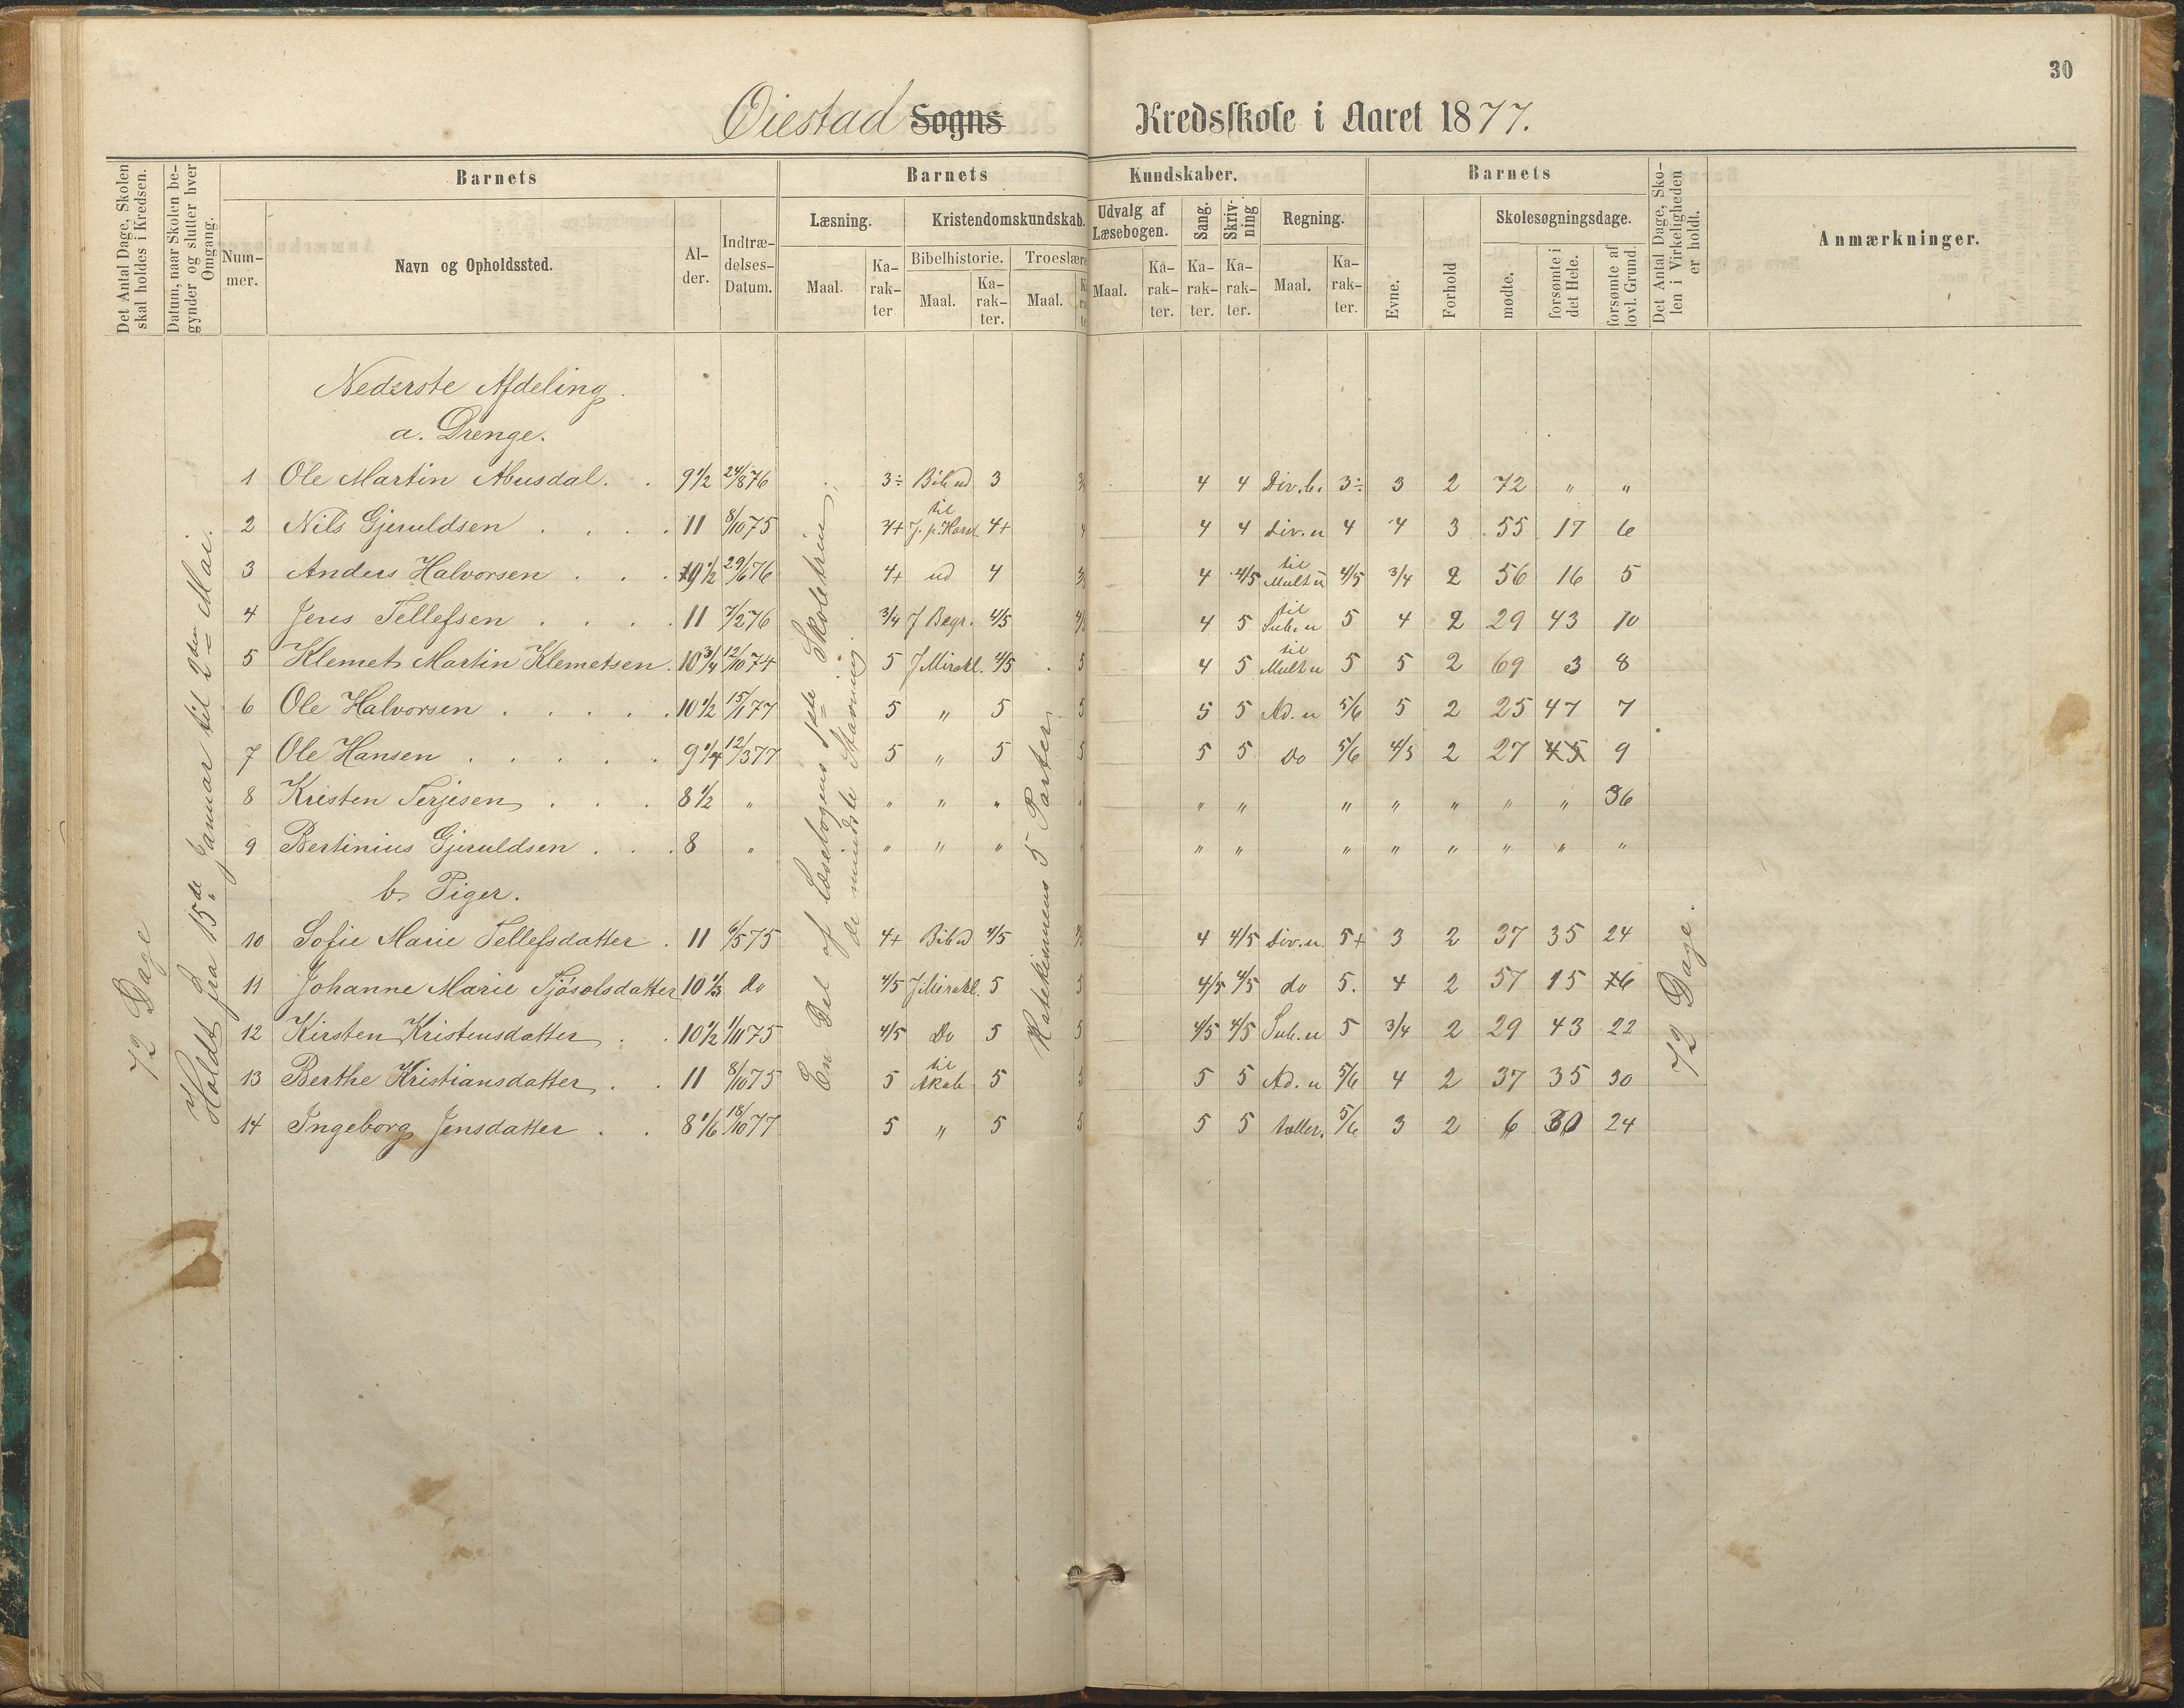 30
Øiestad Sogns Kredsskole i Aaret 1877.
Det Antal Dage, Skolen skal holdes i Kredsen.
Datum, naar Skolen begynder og slutter hver Omgang.
Barnets
Nummer.
Navn og Opholdssted.
Alder.
Indtrædelses-Datum.
Barnets Kundskaber.
Læsning.
Maal.
Karakter
Kristendomskundskab.
Bibelhistorie.
Maal.
Karakter.
Troeslære
Maal.
Udvalg af Læsebogen.
Maal.
Karakter.
Sang.
Karakter.
Skrivning
Karakter.
Regning.
Maal.
Karakter.
Barnets
Evne.
Forhold
Skolesøgningsdage.
mødte.
forsømte i det Hele.
forsømte af lovl. Grund.
Det Antal Dage, Skolen i Virkeligheden er holdt.
Anmærkninger.
72 Dage
Holdt fra 15de Januar til 2den Mai.
En Del af Læsebogens 1ste Skoletrin,
de mindste Stavning.
Katekismens 5 Parter
72 Dage.
Nederste Afdeling.
a. Drenge.
1 Ole Martin Abusdal. . 9 1/2 24/8 76 3÷ Bib ud 3 4 4 Div. b. 3÷ 3 2 72 " "
2 Nils Gjeruldsen . . . . 11 8/10 75 4+ til J. p. Korset 4+ 4 4 4 Div. u 4 4 3 55 17 6
3 Anders Halvorsen . . . 9 1/2 29/6 76 4+ ud 4 4 4/5 til Mult u 4/5 3/4 2 56 16 5
4 Jens Tellefsen . . . . 11 7/2 76 3/4 J Begr. 4/5 4 5 til Sub. u 5 4 2 29 43 10
5 Klemet Martin Klemetsen . 10 3/4 12/10 74 5 J Mirakl. 4/5 5 4 5 til Mult u 5 5 2 69 3 8
6 Ole Halvorsen . . . . . 10 1/2 15/1 77 5 " 5 5 5 5 Ad. u 5/6 5 2 25 47 7
7 Ole Hansen . . . . . 9 1/4 12/3 77 5 " 5 5 5 5 Do 5/6 4/5 2 27 45 9
8 Kristen Terjesen . . . 8 1/2 " " " " " " " " " " " " 36
9 Bertinius Gjeruldsen . . . 8 " " " " " " " " " " " " "
b. Piger.
10 Sofie Marie Tellefsdatter . 11 6/5 75 4+ Bib ud 4/5 4 4/5 Div. u. 5+ 3 2 37 35 24
11 Johanne Marie Tjøsolsdatter 10 1/3 do 4/5 J Mirakl. 5 5 4/5 4/5 do 5. 4 2 57 15 6
12 Kirsten Kristensdatter . . 10 1/2 1/11 75 4/5 Do 5 5 4/5 4/5 Sub. u 5 3/4 2 29 43 22
13 Berthe Kristiansdatter . . 11 8/10 75 5 til Skab 5 5 5 5 Ad. u 5/6 4 2 37 35 30
14 Ingeborg Jensdatter . . 8 1/6 18/10 77 5 " 5 5 5 5 tæller. 5/6 3 2 6 30 24